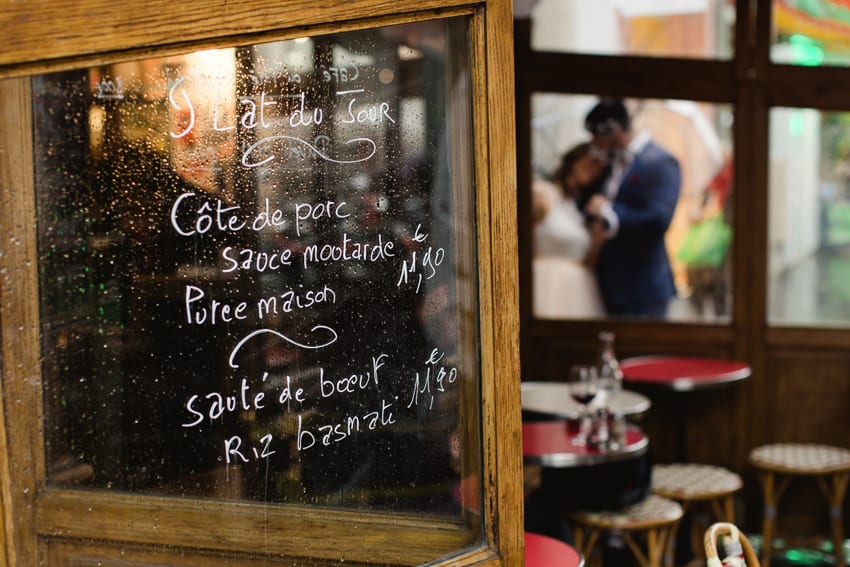 Plat du Jour
Côte de porc
sauce moutarde
11,90 €
Purée maison
sauté de bœuf
11,90 €
Riz basmati